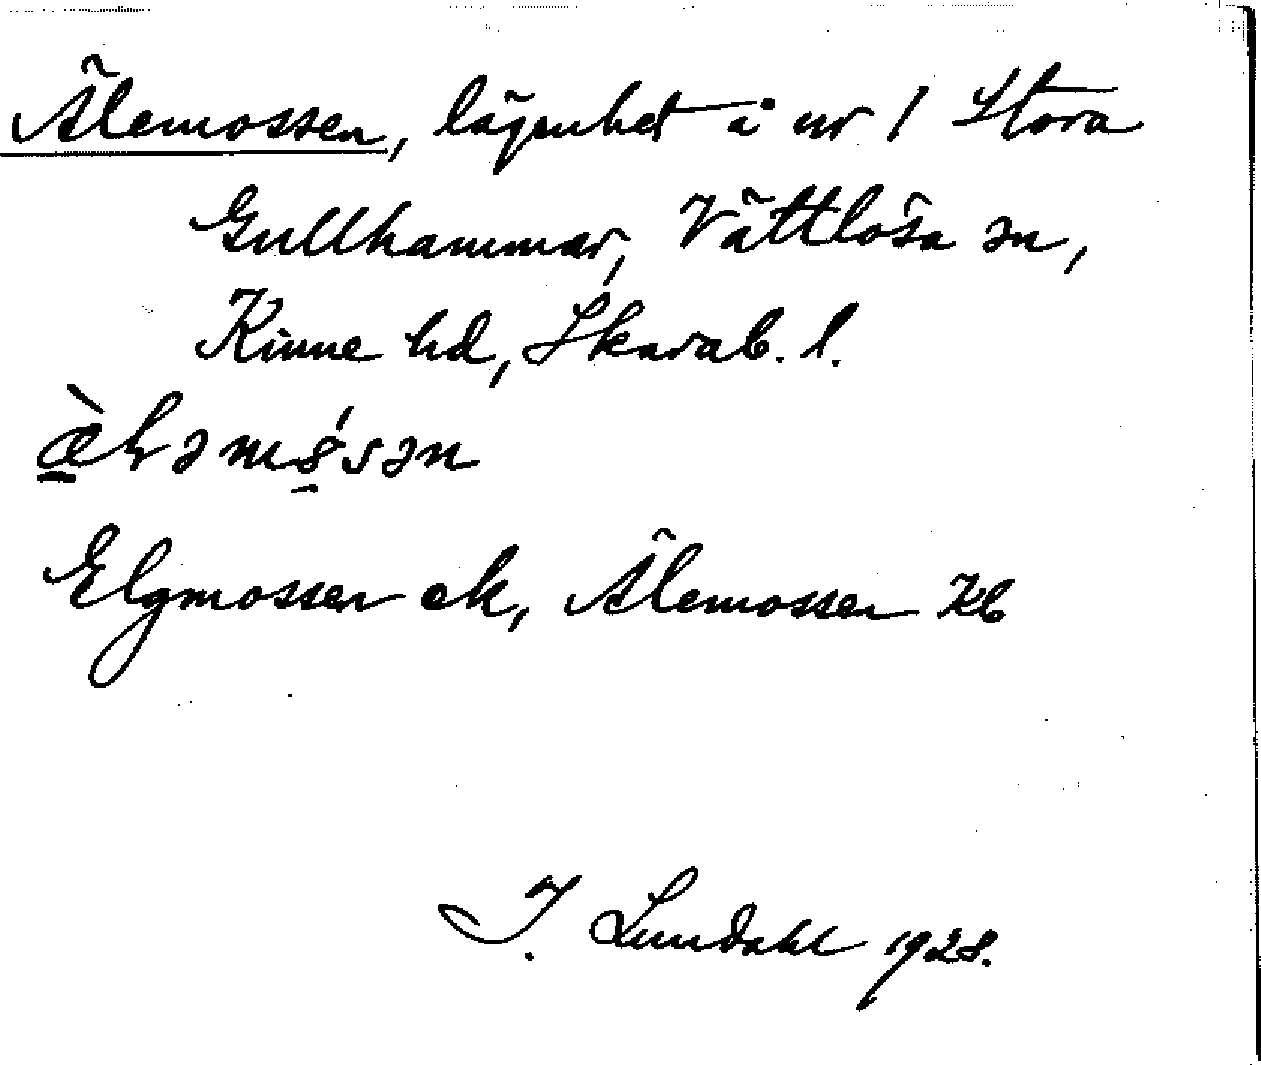 Älemossen, lägenhet å nr 1 Stora
Gullhammar, Vättlösa sn,
Kinne hd, Skarab. l.
Elgmossen ek, Älemossen Kb
I. Lundahl 1928.